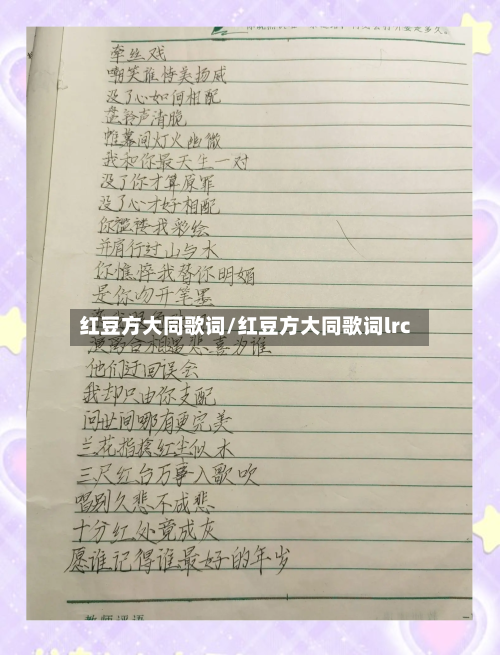 牵丝戏
嘲笑谁恃美扬威
没了心如何相配
盘铃声清脆
帷幕间灯火幽微
我和你最天生一对
没了你才算原罪
没了心才好相配
你褴褛我彩绘
并肩行过山与水
你憔悴我替你明媚
是你吻开笔墨
红豆方大同歌词/红豆方大同歌词lrc
演离合相遇悲喜为谁
他们迂回误会
我却只由你支配
问世间哪有更完美
兰花指捻红尘似水
三尺红台万事入歌吹
唱别久悲不成悲
十分红处竟成灰
愿谁记得谁最好的年岁
教师评语